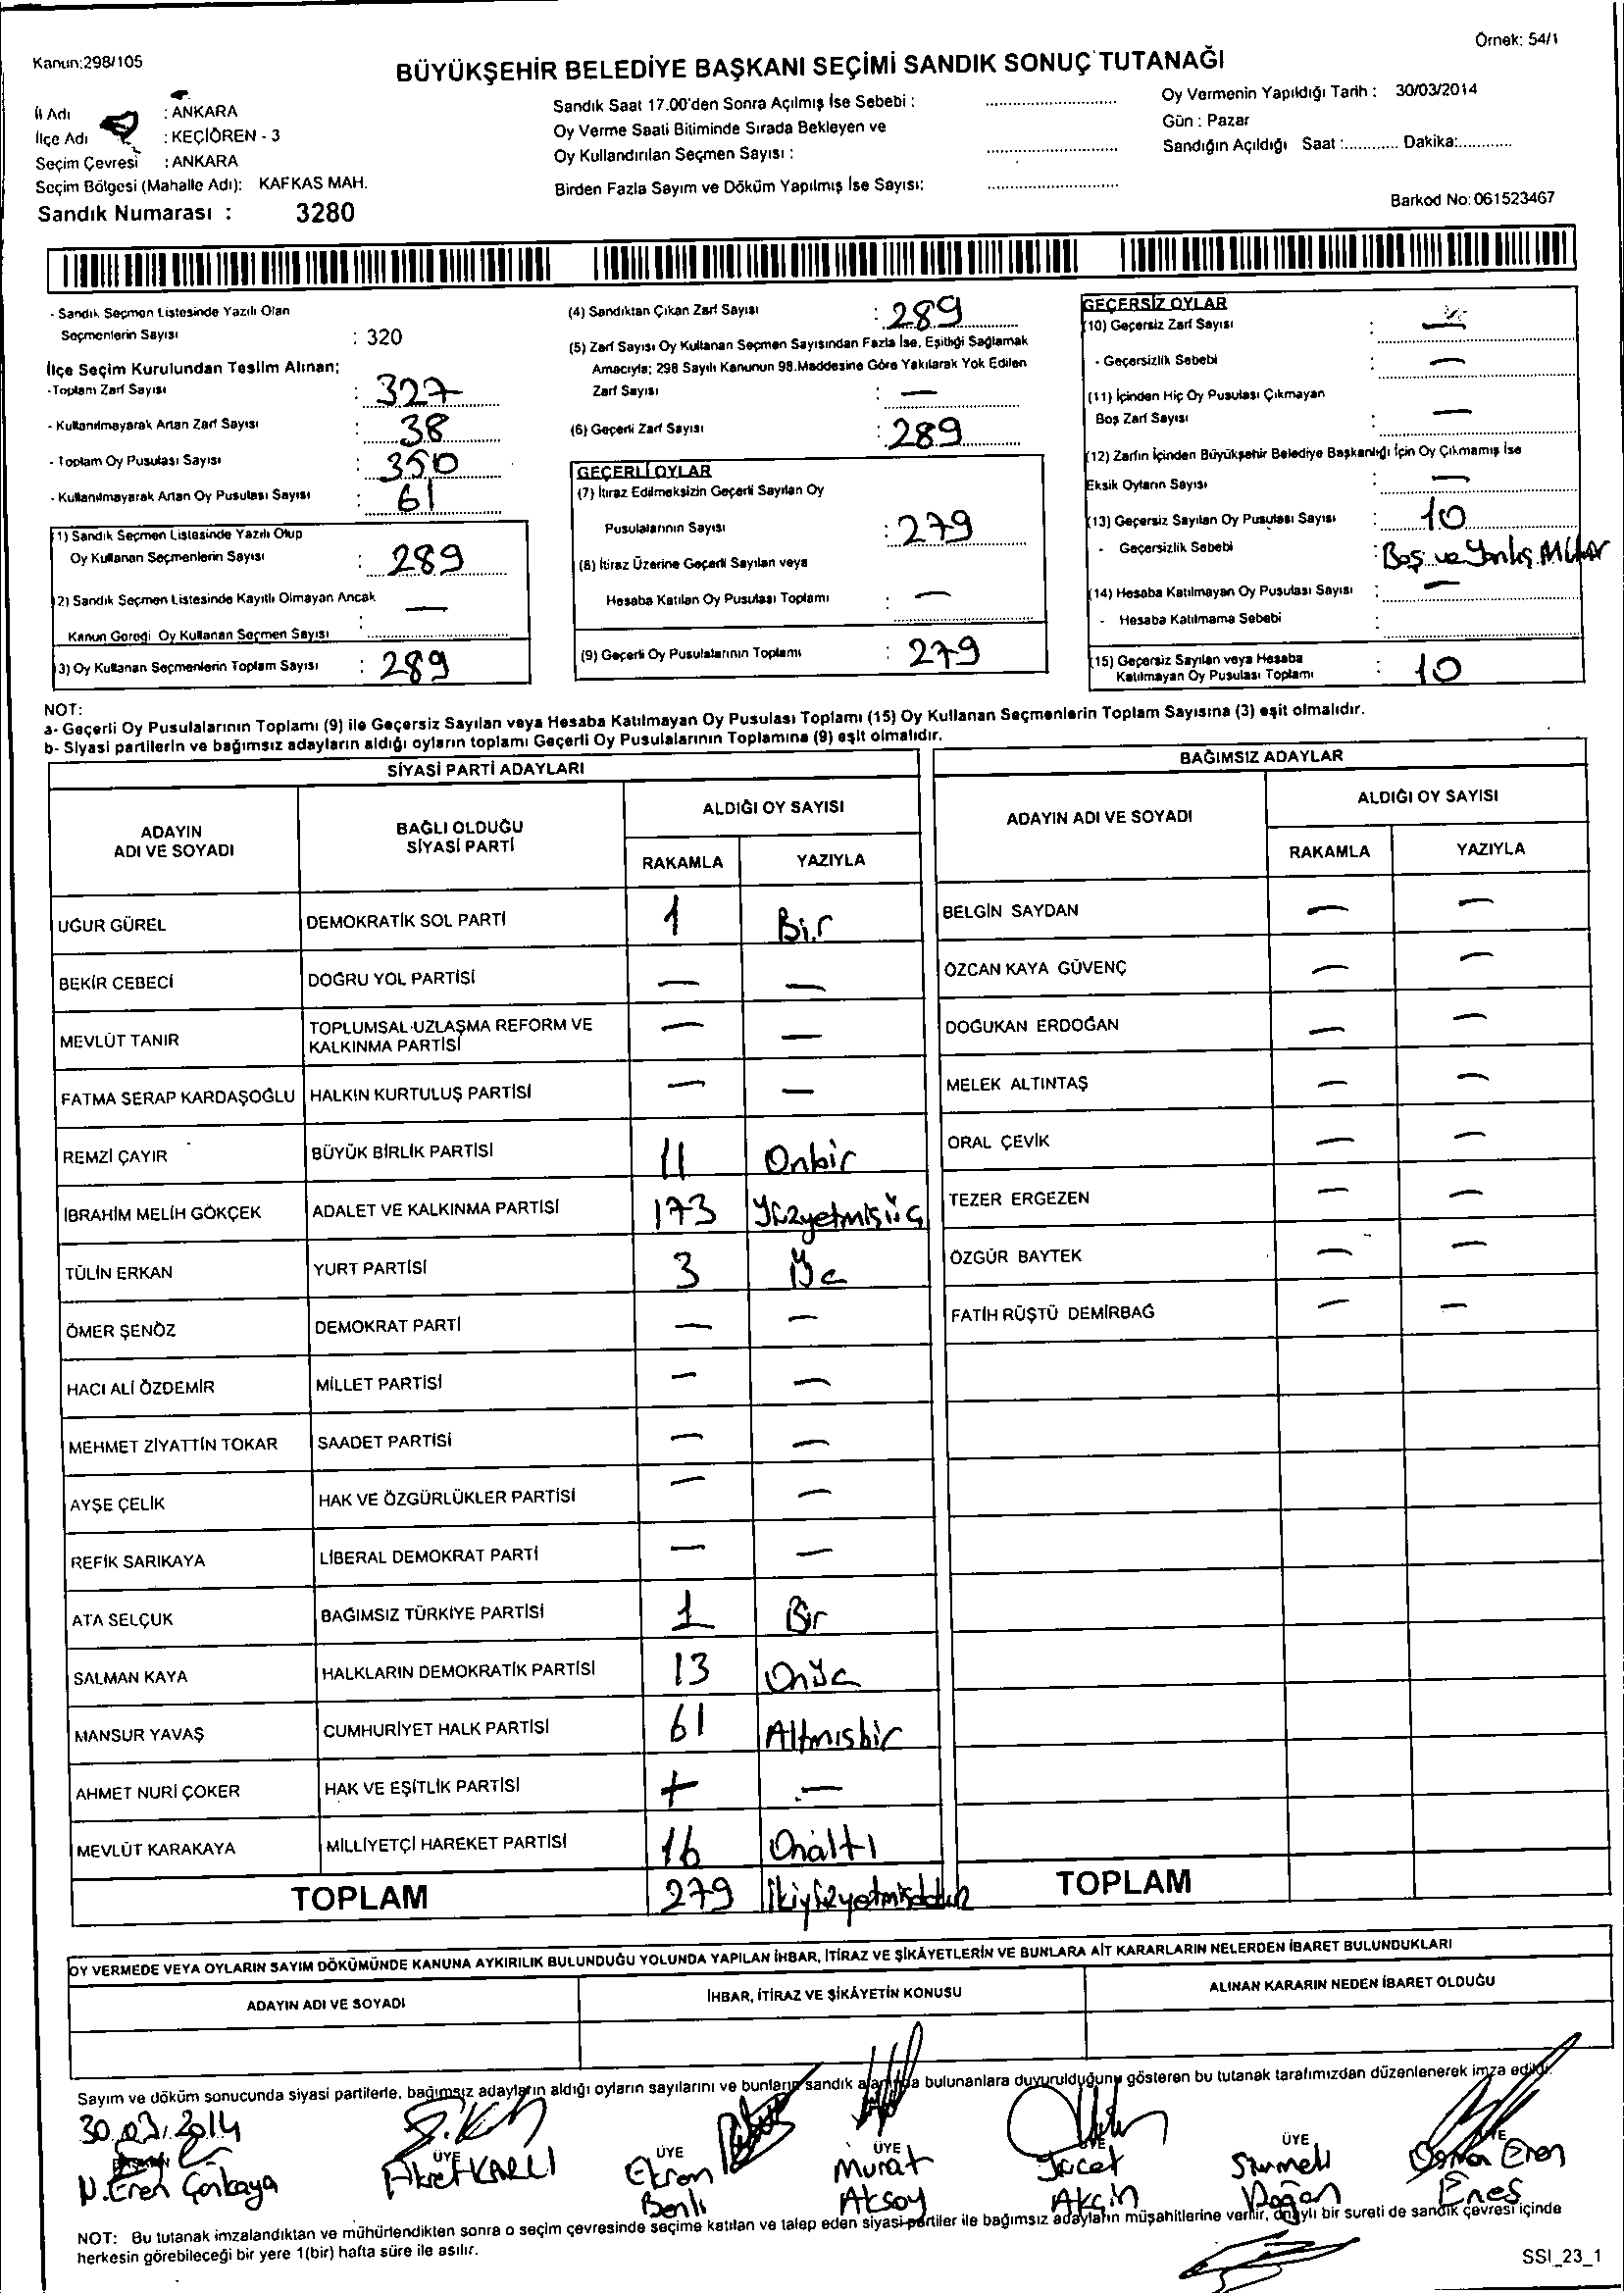 Örnek: 54/1
Kanun:298/105
BÜYÜKŞEHİR BELEDİYE BAŞKANI SEÇİMİ SANDIK SONUÇ TUTANAĞI
İl Adı : ANKARA
İlçe Adı : KEÇİÖREN - 3
Seçim Çevresi : ANKARA
Seçim Bölgesi (Mahalle Adı): KAFKAS MAH.
Sandık Numarası : 3280
Sandık Saat 17.00'den Sonra Açılmış İse Sebebi :
Oy Verme Saati Bitiminde Sırada Bekleyen ve
Oy Kullandırılan Seçmen Sayısı :
Birden Fazla Sayım ve Döküm Yapılmış İse Sayısı:
Oy Vermenin Yapıldığı Tarih : 30/03/2014
Gün : Pazar
Sandığın Açıldığı Saat :............ Dakika:............
Barkod No: 061523467
- Sandık Seçmen Listesinde Yazılı Olan
Seçmenlerin Sayısı : 320
İlçe Seçim Kurulundan Teslim Alınan;
-Toplam Zarf Sayısı : 327
- Kullanılmayarak Artan Zarf Sayısı : 38
- Toplam Oy Pusulası Sayısı : 350
- Kullanılmayarak Artan Oy Pusulası Sayısı : 61
(1) Sandık Seçmen Listesinde Yazılı Olup
Oy Kullanan Seçmenlerin Sayısı : 289
(2) Sandık Seçmen Listesinde Kayıtlı Olmayan Ancak
Kanun Gereği Oy Kullanan Seçmen Sayısı : —
(3) Oy Kullanan Seçmenlerin Toplam Sayısı : 289
(4) Sandıktan Çıkan Zarf Sayısı : 289
(5) Zarf Sayısı Oy Kullanan Seçmen Sayısından Fazla İse, Eşitliği Sağlamak
Amacıyla; 298 Sayılı Kanunun 98.Maddesine Göre Yakılarak Yok Edilen
Zarf Sayısı : —
(6) Geçerli Zarf Sayısı : 289
GEÇERLİ OYLAR
(7) İtiraz Edilmeksizin Geçerli Sayılan Oy
Pusulalarının Sayısı : 279
(8) İtiraz Üzerine Geçerli Sayılan veya
Hesaba Katılan Oy Pusulası Toplamı : —
(9) Geçerli Oy Pusulalarının Toplamı : 279
GEÇERSİZ OYLAR
(10) Geçersiz Zarf Sayısı : —
- Geçersizlik Sebebi : —
(11) İçinden Hiç Oy Pusulası Çıkmayan
Boş Zarf Sayısı : —
(12) Zarfın İçinden Büyükşehir Belediye Başkanlığı İçin Oy Çıkmamış İse
Eksik Oyların Sayısı : —
(13) Geçersiz Sayılan Oy Pusulası Sayısı : 10
- Geçersizlik Sebebi : Boş ve Yanlış Mühür
(14) Hesaba Katılmayan Oy Pusulası Sayısı : —
- Hesaba Katılmama Sebebi :
(15) Geçersiz Sayılan veya Hesaba
Katılmayan Oy Pusulası Toplamı : 10
NOT:
a- Geçerli Oy Pusulalarının Toplamı (9) ile Geçersiz Sayılan veya Hesaba Katılmayan Oy Pusulası Toplamı (15) Oy Kullanan Seçmenlerin Toplam Sayısına (3) eşit olmalıdır.
b- Siyasi partilerin ve bağımsız adayların aldığı oyların toplamı Geçerli Oy Pusulalarının Toplamına (9) eşit olmalıdır.
SİYASİ PARTİ ADAYLARI
ADAYIN ADI VE SOYADI
BAĞLI OLDUĞU SİYASİ PARTİ
ALDIĞI OY SAYISI
RAKAMLA YAZIYLA
UĞUR GÜREL DEMOKRATİK SOL PARTİ 1 Bir
BEKİR CEBECİ DOĞRU YOL PARTİSİ — —
MEVLÜT TANIR TOPLUMSAL UZLAŞMA REFORM VE KALKINMA PARTİSİ — —
FATMA SERAP KARDAŞOĞLU HALKIN KURTULUŞ PARTİSİ — —
REMZİ ÇAYIR BÜYÜK BİRLİK PARTİSİ 11 Onbir
İBRAHİM MELİH GÖKÇEK ADALET VE KALKINMA PARTİSİ 173 Yüzyetmişüç
TÜLİN ERKAN YURT PARTİSİ 3 Üç
ÖMER ŞENÖZ DEMOKRAT PARTİ — —
HACI ALİ ÖZDEMİR MİLLET PARTİSİ — —
MEHMET ZİYATTİN TOKAR SAADET PARTİSİ — —
AYŞE ÇELİK HAK VE ÖZGÜRLÜKLER PARTİSİ — —
REFİK SARIKAYA LİBERAL DEMOKRAT PARTİ — —
ATA SELÇUK BAĞIMSIZ TÜRKİYE PARTİSİ 1 Bir
SALMAN KAYA HALKLARIN DEMOKRATİK PARTİSİ 13 Onüç
MANSUR YAVAŞ CUMHURİYET HALK PARTİSİ 61 Altmışbir
AHMET NURİ ÇOKER HAK VE EŞİTLİK PARTİSİ — —
MEVLÜT KARAKAYA MİLLİYETÇİ HAREKET PARTİSİ 16 Onaltı
TOPLAM 279 İkiyüzyetmişdokuz
BAĞIMSIZ ADAYLAR
ADAYIN ADI VE SOYADI
ALDIĞI OY SAYISI
RAKAMLA YAZIYLA
BELGİN SAYDAN — —
ÖZCAN KAYA GÜVENÇ — —
DOĞUKAN ERDOĞAN — —
MELEK ALTINTAŞ — —
ORAL ÇEVİK — —
TEZER ERGEZEN — —
ÖZGÜR BAYTEK — —
FATİH RÜŞTÜ DEMİRBAĞ — —
TOPLAM
OY VERMEDE VEYA OYLARIN SAYIM DÖKÜMÜNDE KANUNA AYKIRILIK BULUNDUĞU YOLUNDA YAPILAN İHBAR, İTİRAZ VE ŞİKÂYETLERİN VE BUNLARA AİT KARARLARIN NELERDEN İBARET BULUNDUKLARI
ADAYIN ADI VE SOYADI
İHBAR, İTİRAZ VE ŞİKÂYETİN KONUSU
ALINAN KARARIN NEDEN İBARET OLDUĞU
Sayım ve döküm sonucunda siyasi partilerle, bağımsız adayların aldığı oyların sayılarını ve bunların sandık alanında bulunanlara duyurulduğunu gösteren bu tutanak tarafımızdan düzenlenerek imza edildi.
30.03.2014
ÜYE ÜYE ÜYE ÜYE ÜYE
N. Eren Fikret KARLI Murat Aksoy Akçin Doğan Osman Eren
NOT: Bu tutanak imzalandıktan ve mühürlendikten sonra o seçim çevresinde seçime katılan ve talep eden siyasi partiler ile bağımsız adayların müşahitlerine verilir, onaylı bir sureti de sandık çevresi içinde
herkesin görebileceği bir yere 1(bir) hafta süre ile asılır.
SSI_23_1